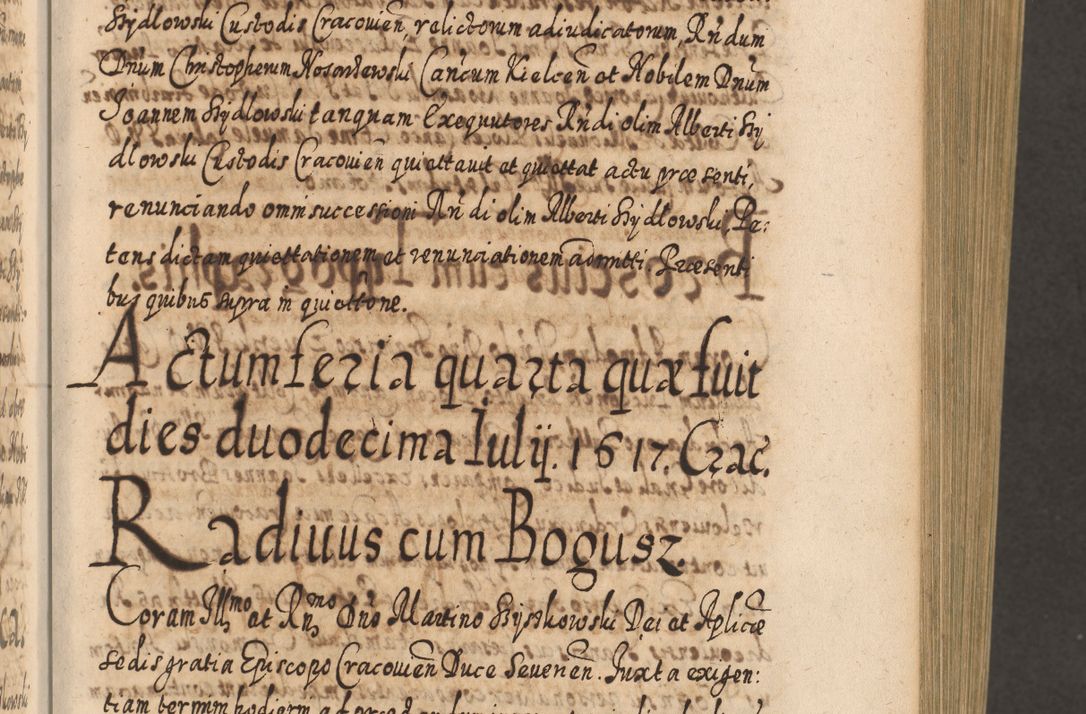 Szydlowski Custodis Cracovień, relictorum adiudicatorum, Rńdum
Dnum Christopherum Nosarzewski Cańcum Kielceń et Nobilem Dnum
Joannem Szydlowski tanquam Exequutores Rńdi olim Alberti Szy
dlowski Custodis Cracovień quiettauit et quiettat actu præsenti,
renunciando omni successioni Rńdi olim Alberti Szydlowski, Pe:
tens dictam quiettationem et renunciationem admitti. Præsenti
bus quibus supra in quiettone.
Actum feria quarta quæ fuit
dies duodecima Iulij. 1617. Crac.
Radiuus cum Bogusz
Coram Illmo et Rńmo Dńo Martino Szyszkowski Dei et Aplicæ
sedis gratia Episcopo Cracovień Duce Severień. Juxta exigen:
tiam termini hodierni